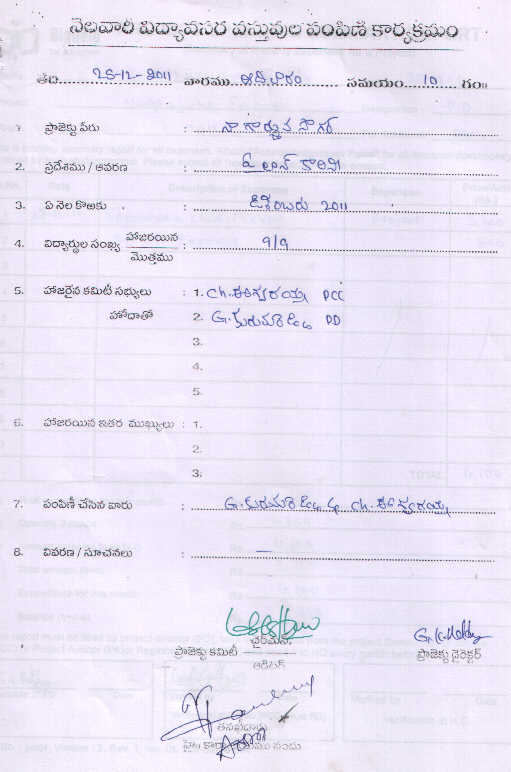 నెలవారి విద్యావసర వస్తువుల పంపిణి కార్యక్రమం
తేది 25-12-2011 వారము ఆదివారం సమయం 10 గం॥
1. ప్రాజెక్టు పేరు : నాగార్జున సాగర్
2. ప్రదేశము / ఆవరణ : పైలాన్ కాలనీ
3. ఏ నెల కొఱకు : డిశంబరు 2011
4. విద్యార్థుల సంఖ్య హాజరయిన / మొత్తము : 9/9
5. హాజరైన కమిటీ సభ్యులు : 1. Ch. ఈశ్వరయ్య PCC
హోదాతో 2. G. కురుమారెడ్డి PD
3.
4.
5.
6. హాజరయిన ఇతర ముఖ్యులు : 1.
2.
3.
7. పంపిణీ చేసిన వారు : G. కురుమారెడ్డి & Ch. ఈశ్వరయ్య
8. వివరణ / సూచనలు : —
ప్రాజెక్టు కమిటీ చైర్మన్
ఆడిటర్
G.K. Reddy
ప్రాజెక్టు డైరెక్టర్